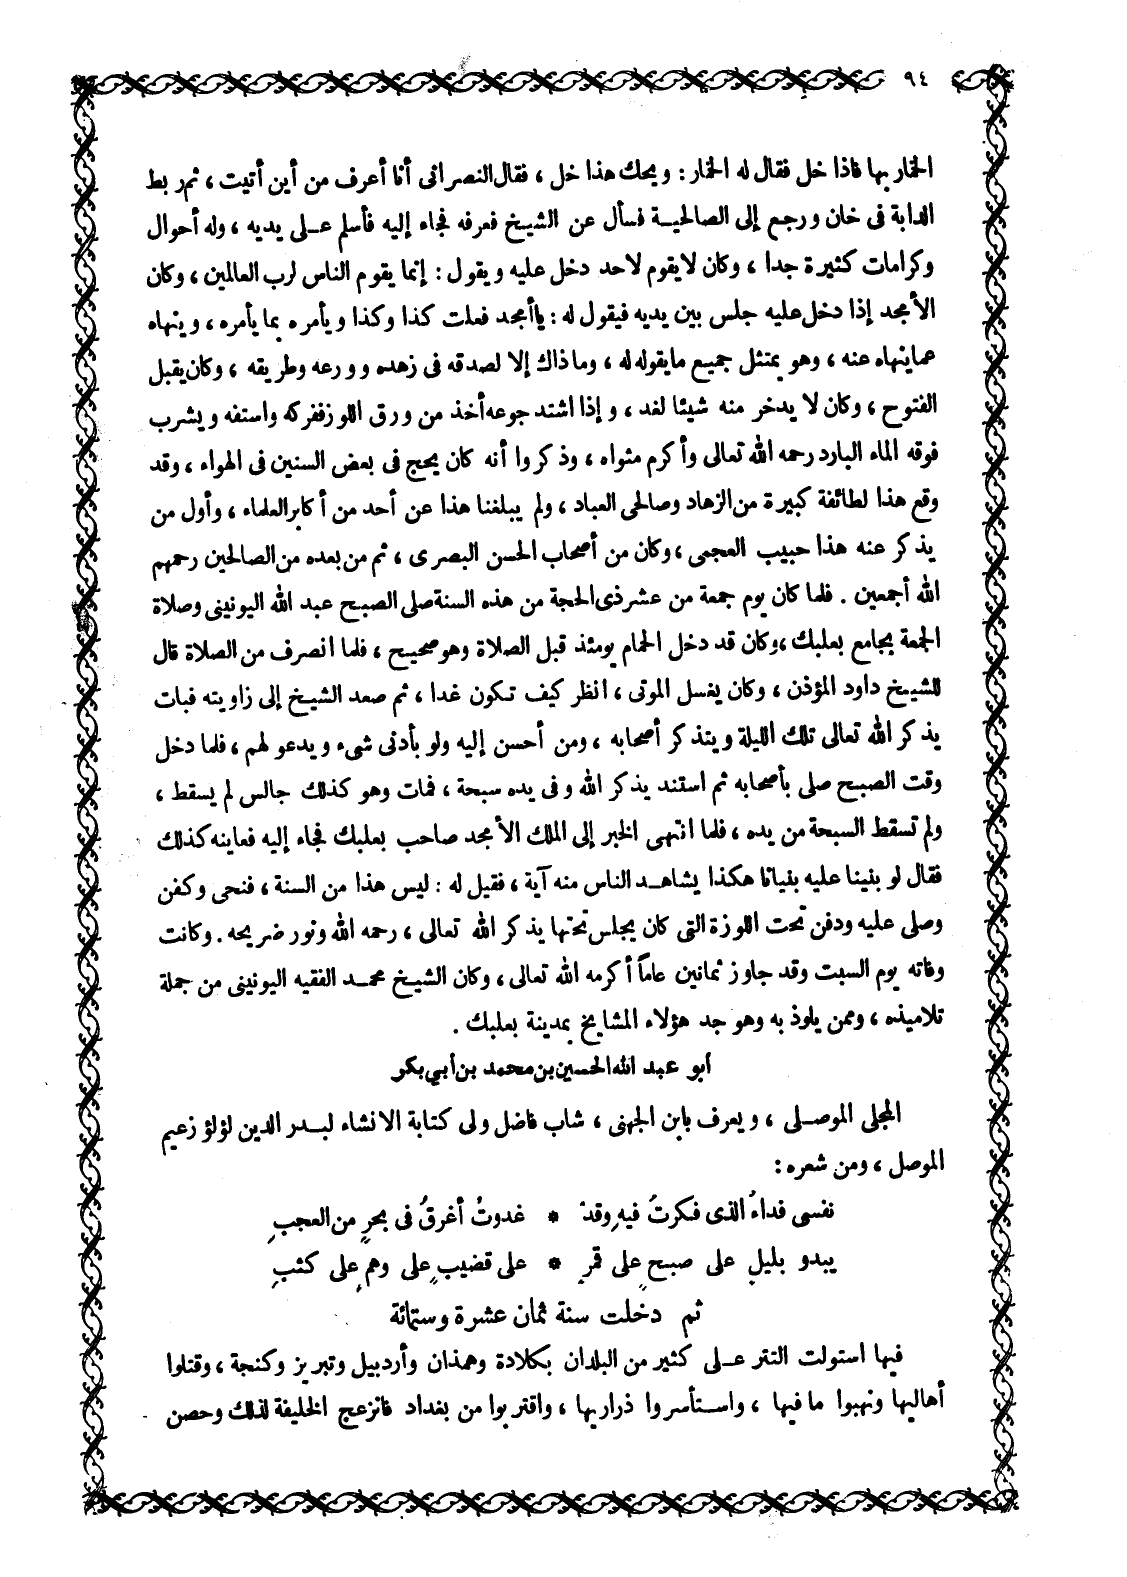 ٩٤
الخمار بها فاذا خل فقال له الخمار : ويحك هذا خل ، فقال النصرانى أنا أعرف من أين أتيت ، ثم ربط
الدابة فى خان ورجع إلى الصالحية فسأل عن الشيخ فعرفه فجاء إليه فأسلم على يديه ، وله أحوال
وكرامات كثيرة جدا ، وكان لا يقوم لاحد دخل عليه ويقول : إنما يقوم الناس لرب العالمين ، وكان
الأمجد إذا دخل عليه جلس بين يديه فيقول له : يا أمجد فعلت كذا وكذا ويأمره بما يأمره ، وينهاه
عما ينهاه عنه ، وهو يمتثل جميع ما يقوله له ، وما ذاك إلا لصدقه فى زهده وورعه وطريقه ، وكان يقبل
الفتوح ، وكان لا يدخر منه شيئا لغد ، وإذا اشتد جوعه أخذ من ورق اللوز ففركه واستفه ويشرب
فوقه الماء البارد رحمه الله تعالى وأكرم مثواه ، وذكروا أنه كان يحج فى بعض السنين فى الهواء ، وقد
وقع هذا لطائفة كبيرة من الزهاد وصالحى العباد ، ولم يبلغنا هذا عن أحد من أكابر العلماء ، وأول من
يذكر عنه هذا حبيب العجمى ، وكان من أصحاب الحسن البصرى ، ثم من بعده من الصالحين رحمهم
الله أجمعين . فلما كان يوم جمعة من عشر ذى الحجة من هذه السنة صلى الصبح عبد الله اليونينى وصلاة
الجمعة بجامع بعلبك ، وكان قد دخل الحمام يومئذ قبل الصلاة وهو صحيح ، فلما انصرف من الصلاة قال
للشيخ داود المؤذن ، وكان يغسل الموتى ، انظر كيف تكون غدا ، ثم صعد الشيخ إلى زاويته فبات
يذكر الله تعالى تلك الليلة ويتذكر أصحابه ، ومن أحسن إليه ولو بأدنى شىء ويدعو لهم ، فلما دخل
وقت الصبح صلى بأصحابه ثم استند يذكر الله وفى يده سبحة ، فمات وهو كذلك جالس لم يسقط ،
ولم تسقط السبحة من يده ، فلما انتهى الخبر إلى الملك الأمجد صاحب بعلبك فجاء إليه فعاينه كذلك
فقال لو بنينا عليه بنيانا هكذا يشاهد الناس منه آية ، فقيل له : ليس هذا من السنة ، فنحى وكفن
وصلى عليه ودفن تحت اللوزة التى كان يجلس تحتها يذكر الله تعالى ، رحمه الله ونور ضريحه . وكانت
وفاته يوم السبت وقد جاوز ثمانين عاماً أكرمه الله تعالى ، وكان الشيخ محمد الفقيه اليونينى من جملة
تلاميذه ، وممن يلوذ به وهو جد هؤلاء المشايخ بمدينة بعلبك .
أبو عبد الله الحسين بن محمد بن أبي بكر
المجلى الموصلى ، ويعرف بابن الجهنى ، شاب فاضل ولى كتابة الانشاء لبدر الدين لؤلؤ زعيم
الموصل ، ومن شعره :
نفسى فداءُ الذى فكرتُ فيهِ وقدْ * غدوتُ أغرقُ فى بحرٍ من العجبِ
يبدو بليلٍ على صبحٍ على قمرٍ * على قضيبٍ على وهمٍ على كثبِ
ثم دخلت سنة ثمان عشرة وستمائة
فيها استولت التتر على كثير من البلدان بكلادة وهمذان وأردبيل وتبريز وكنجة ، وقتلوا
أهاليها ونهبوا ما فيها ، واستأسروا ذراريها ، واقتربوا من بغداد فانزعج الخليفة لذلك وحصن